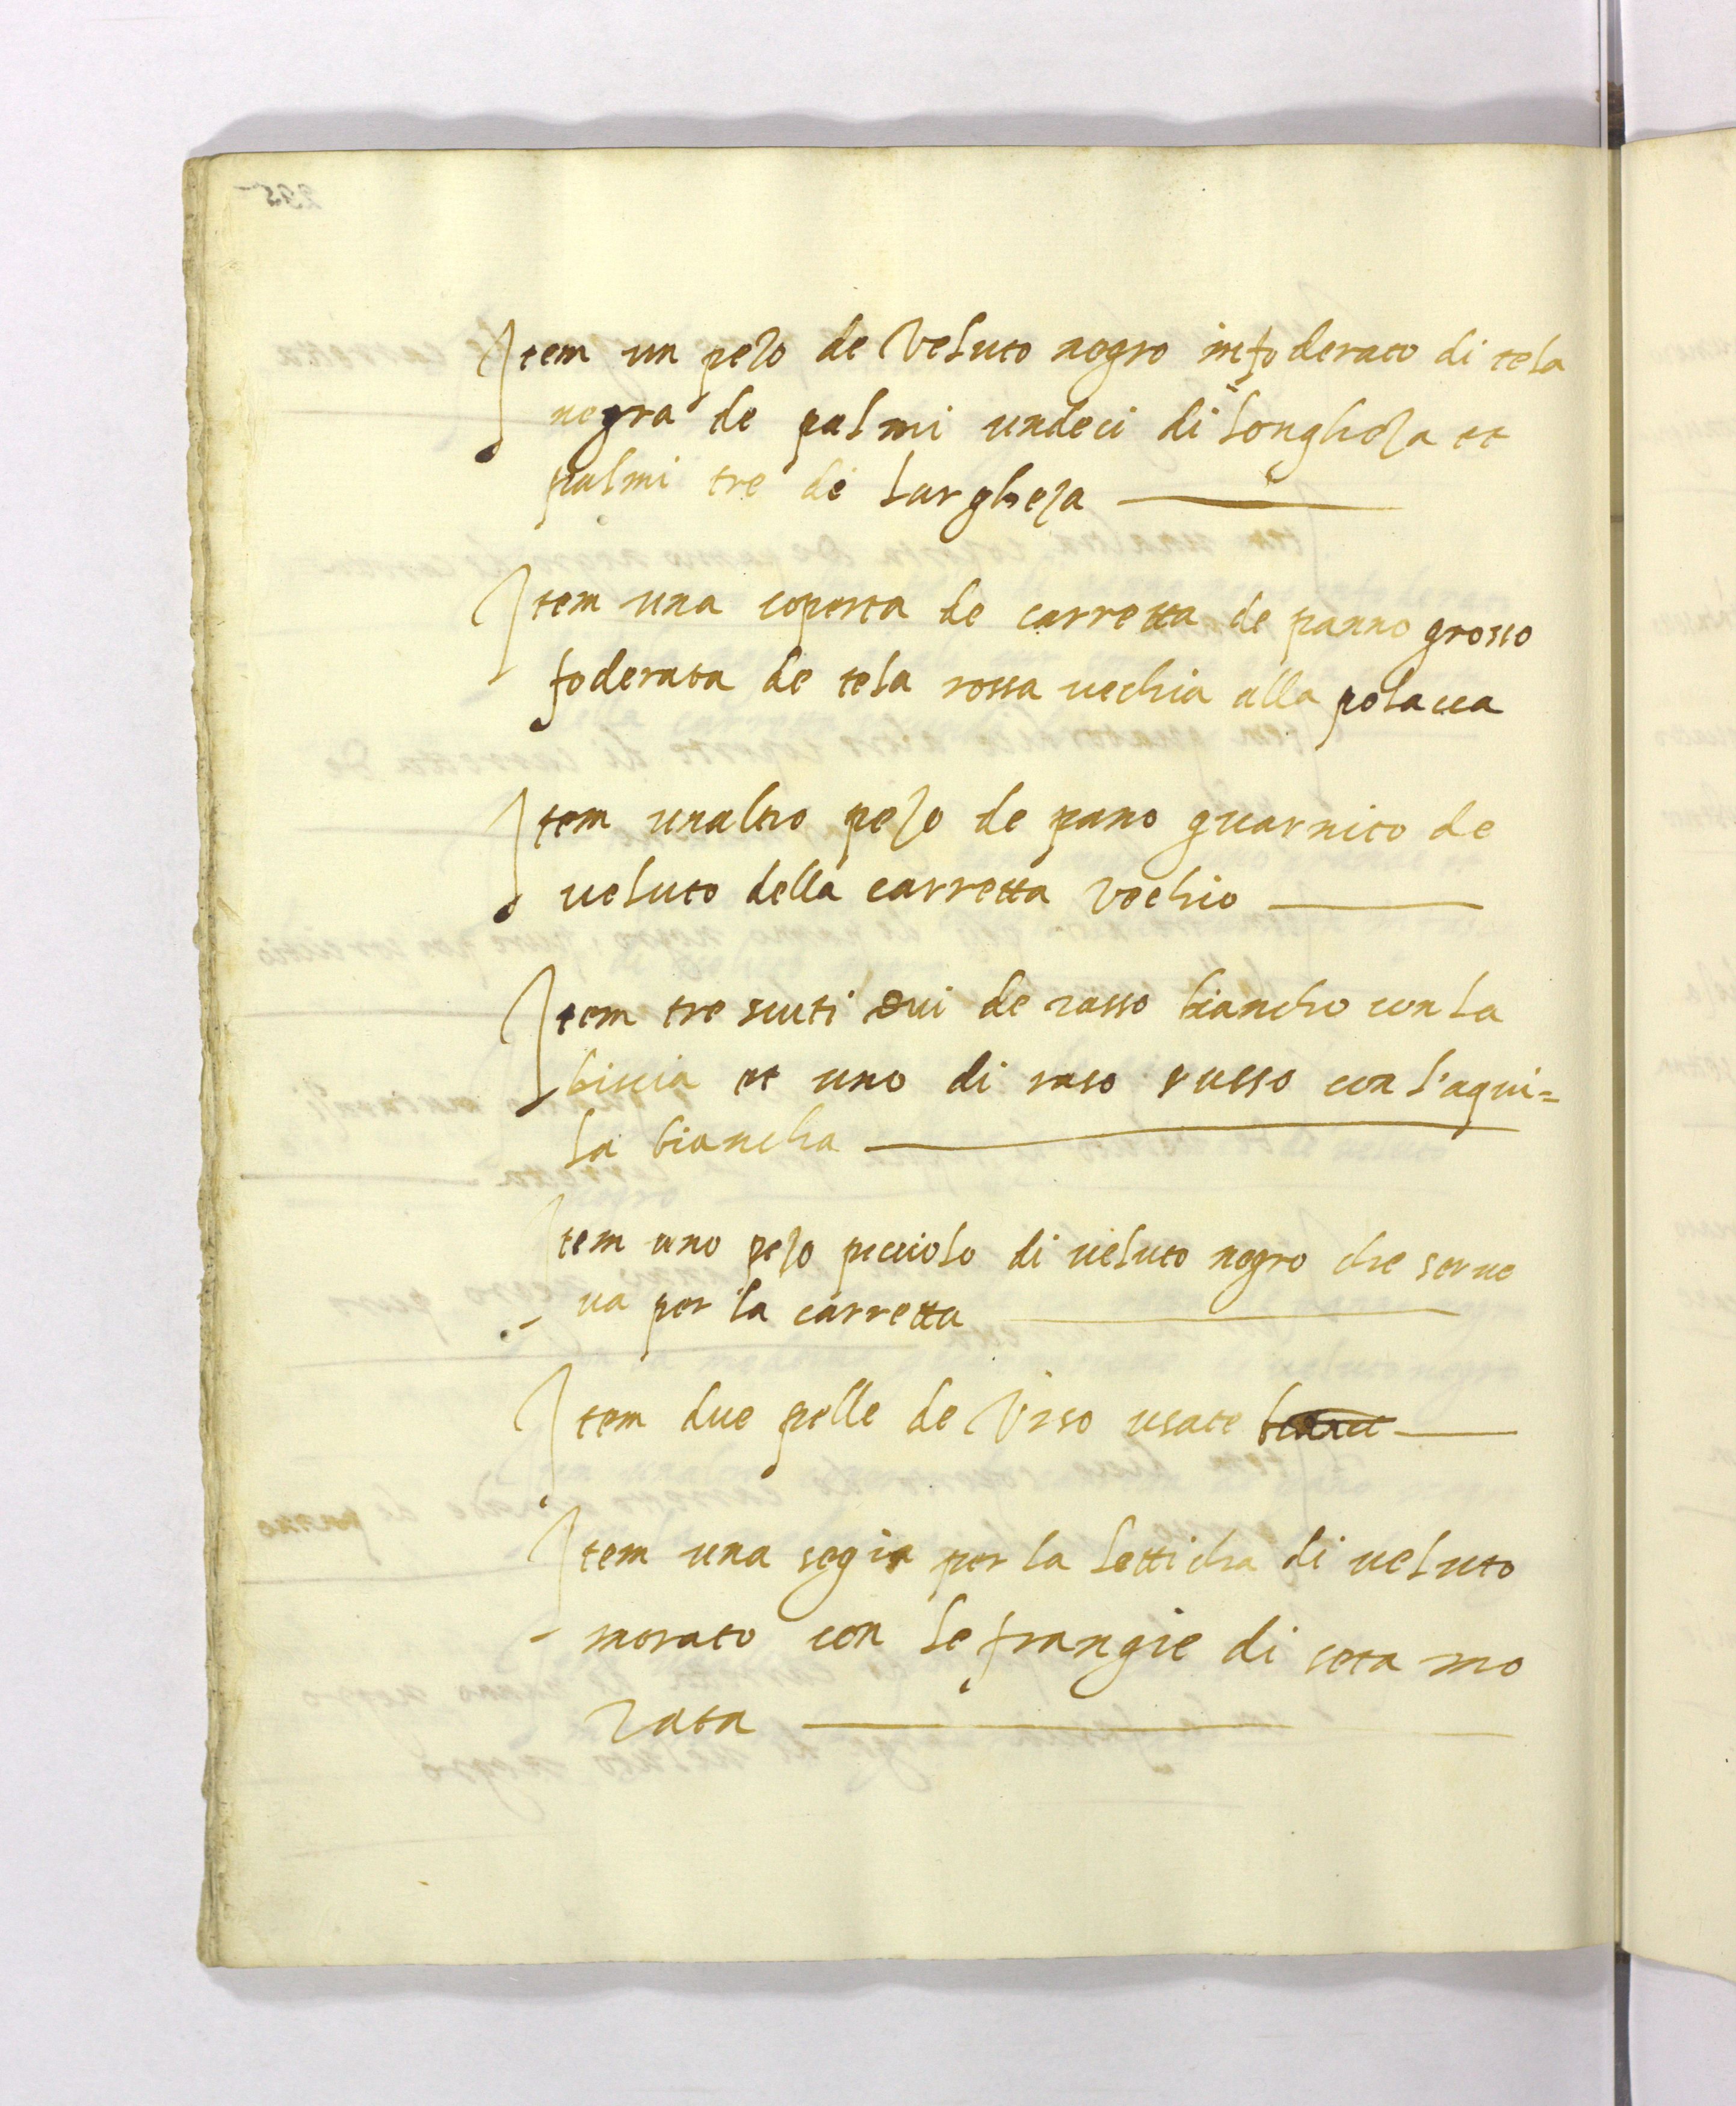 Item un pezo de Veluto negro infoderato di tela
negra de palmi undeci di longheza et
palmi tre di largheza
Item una coperta de carretta de panno grosso
foderata de tela rossa uechia alla polacca
Item unaltro pezo de pano guarnito de
ueluto della carretta Vechio
Item tre scuti dui de rasso biancho con la
biscia et uno di raso russo con l'aqui=
la biancha
Item uno pezo picciolo di ueluto negro che serue
ua per la carretta
Item due pelle de Urso usate
Item una segia per la letticha di ueluto
morato con le frangie di seta mo
rata